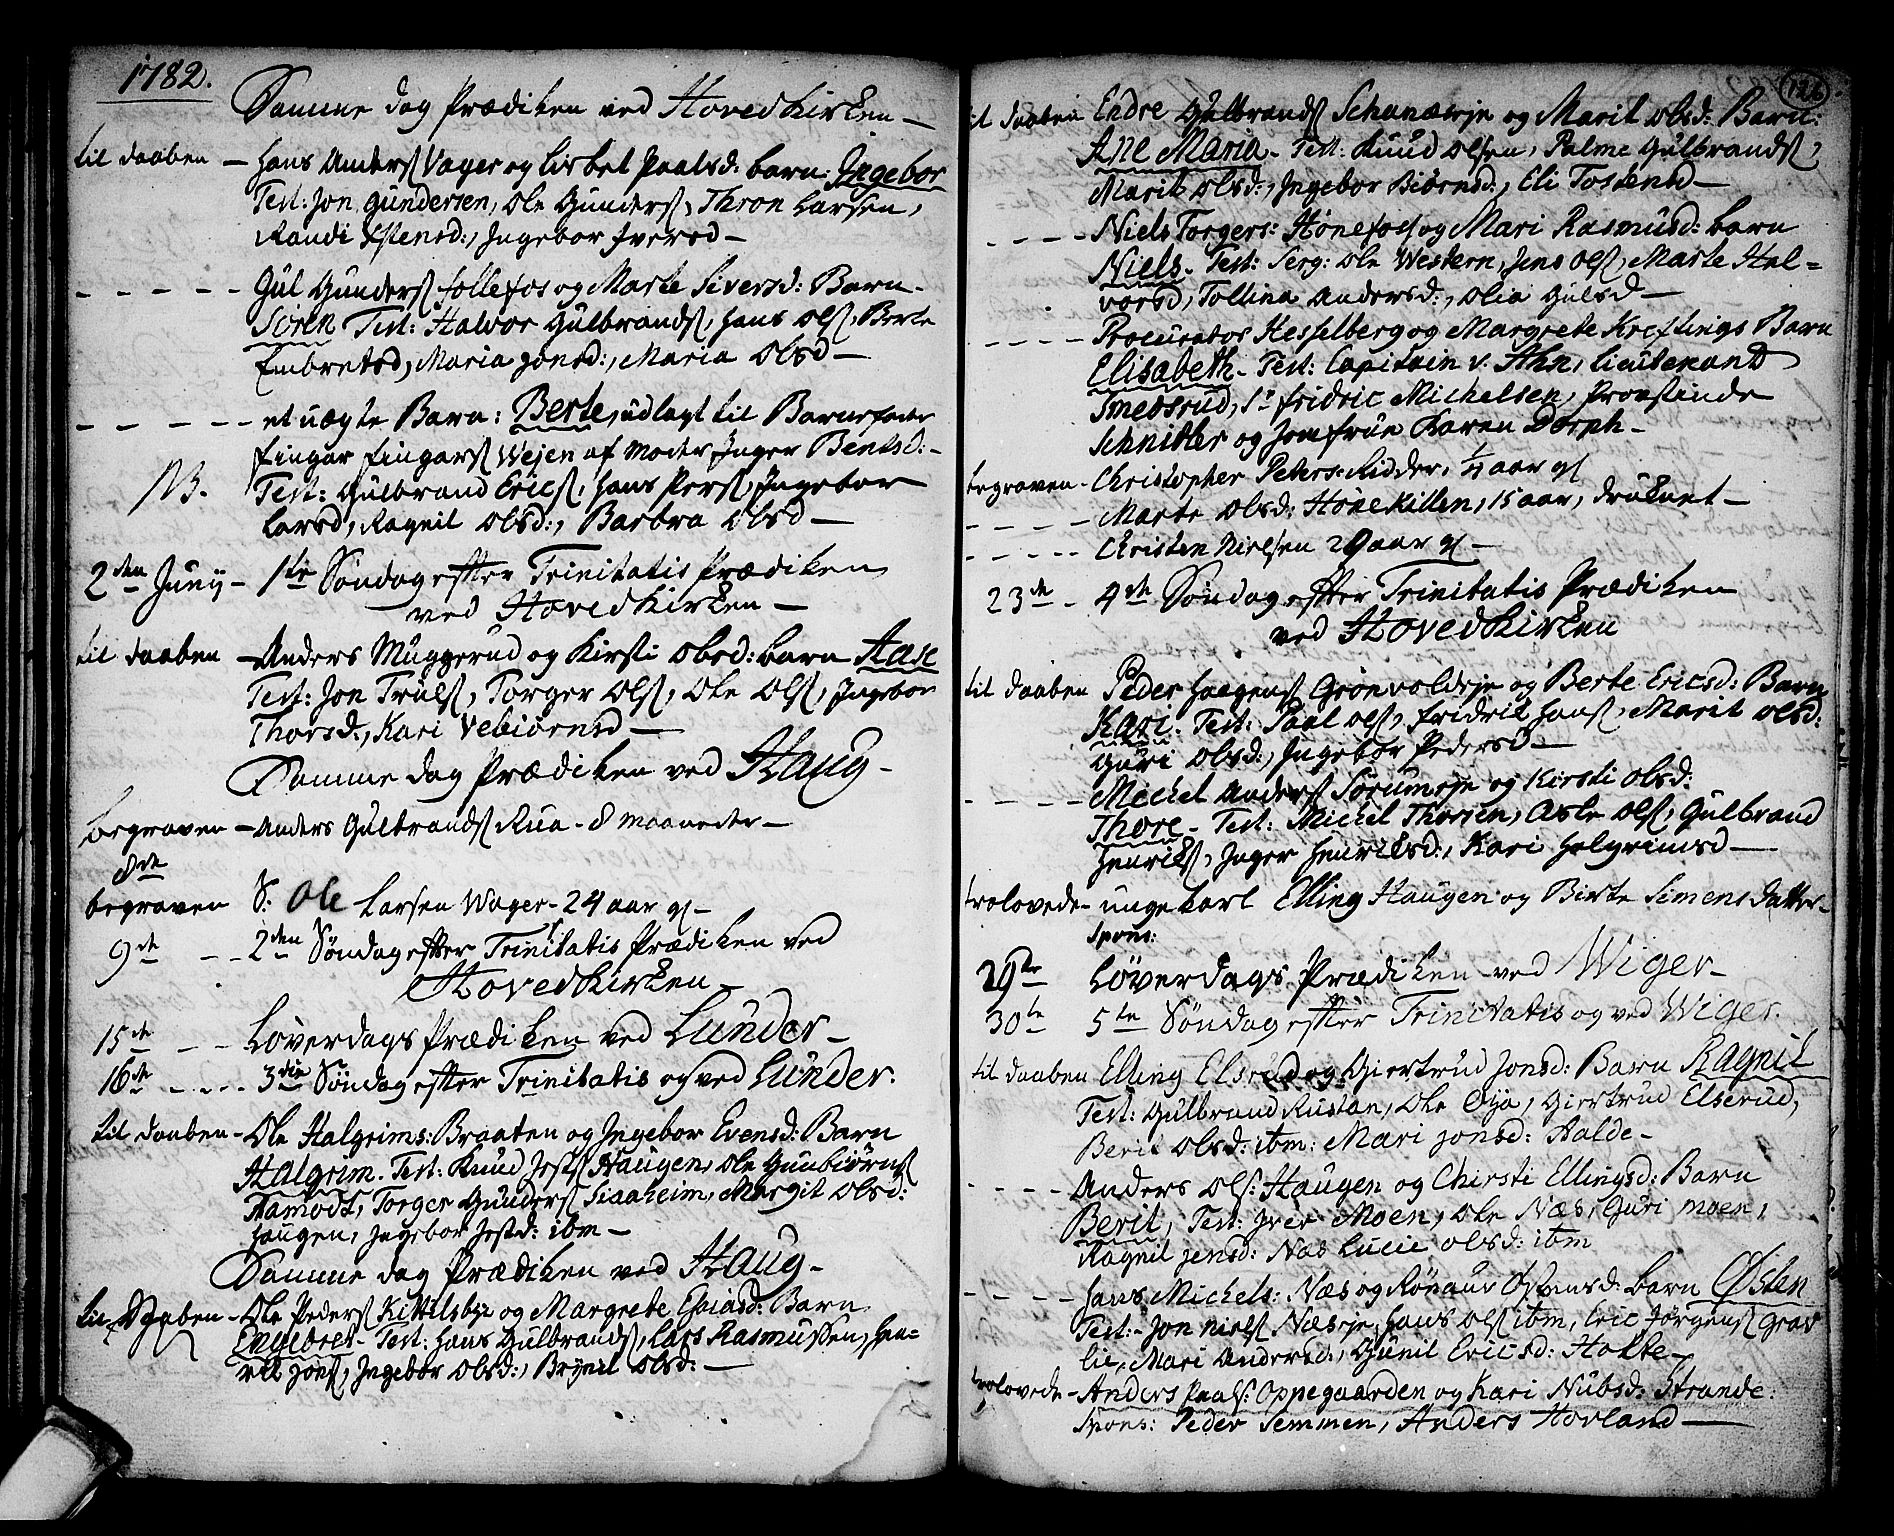 1782.
Samme dag Prædiken ved Hovedkirken –
til daaben – Hans Anders. Vager og Lisbet Paalsd: barn: Ingebor
Test: Jon Gundersen, Ole Gunders., Thron Larsen,
Randi Ostensd:, Ingebor Iversd –
– – – – – Gul Gunders. follefos og Marte Siversd: Barn
Sören Test: Halvor Gulbrands., Hans Ols., Berte
Embretsd, Maria Jonsd:, Maria Olsd –
– – – – – et uægte Barn: Berte, udlagt til Barnefader
fingar fingars. Wejen af Moder Inger Bentsd: –
NB. Test: Gulbrand Erics., Hans Pers., Ingebor
Larsd, Ragnil Olsd:, Barbra Olsd –
2den Juny – 1ste Söndag efter Trinitatis Prædiken
ved Hovedkirken –
til daaben – Anders Muggerud og Kirsti Olsd: barn Aase
Test: Jon Truls., Torger Ols., Ole Ols., Ingebor
Thorsd., Kari Vebiörnsd –
Samme dag Prædiken ved Haug –
begraven – Anders Gulbrands. Rua – 8 maaneder –
8de
begraven S: Ole Larsen Wager – 24 aar gl –
9de – – 2den Söndag efter Trinitatis Prædiken ved
Hovedkirken –
15de – – Löverdags Prædiken ved Lunder –
16de – – – 3die Söndag efter Trinitatis og ved Lunder.
til daaben – Ole Halgrims: Braaten og Ingebor Evensd: Barn
Halgrim. Test: Knud Josts. Haugen, Ole Gunbiörns.
Hamodt, Torger Gunders. Siaaheim, Margit Olsd:
Haugen, Ingebor Jostd: ibm –
Samme dag Prædiken ved Haug –
til Daaben – Ole Peders. Kittilsbye og Margrete Esaiasd: Barn
Engebret – Test: Hans Gulbrands., Lars Rasmussen, Hen=
rik Jons., Ingebor Olsd:, Brynil Olsd: –
126
til daaben Endre Gulbrands. Schanærje og Marit Olsd: Barn:
Ane Maria – Test: Knud Olsen, Palme Gulbrands.,
Marit Olsd:, Ingebor Biörnsd:, Eli Tostensd –
– – – – Niels Torgers: Hönefos og Mari Rasmusd: barn
Niels – Test: Serg: Ole Western, Jens Ols., Marte Hal=
vorsd, Tollina Andersd:, Olia Gulsd –
– – – – Procurator Hesselberg og Margrete Kreftings Barn
Elisabeth – Test: Capitain v. Ahn, Lieutenant
Smedsrud, Sr fridric Michelsen, Provstinde
Schnitler og Jomfrue Karen Dorph –
begraven – Christopher Peters: Ridder, 1/4 aar gl
– – – – Marte Olsd: Hönekillen, 15 aar, druknet –
– – – – Christen Nielsen 29 aar gl –
23de – 4de Söndag efter Trinitatis Prædiken
ved Hovedkirken
til daaben Peder Haagens. Grönvoldeje og Berte Ericsd: Barn
Kari – Test: Paal Ols., fridrik Hans., Marit Olsd:
Guri Olsd:, Ingebor Pedersd –
– – – – Mechel Anders. Sörumeje og Kirsti Olsd:
Thore – Test: Michel Thorsen, Asle Ols., Gulbrand
Henriks., Inger Henriksd:, Kari Halgrimsd –
trolovede – unge karl Elling Haugen og Birte Simens datter –
Spons:
29de Löverdags Prædiken ved Wiger –
30te 5te Söndag efter Trinitatis og ved Wiger.
til daaben Elling Elsrud og Giertrud Jonsd: Barn Ragnil
Test: Gulbrand Rustan, Ole Öya, Giertrud Elserud,
Berit Olsd: ibm: Mari Jonsd: Aalde –
– – – – Anders Ols: Haugen og Chirsti Ellingsd: Barn
Berit, Test: Iver Moen, Ole Næs, Guri Moen,
Ragnil Jensd: Næs Lucie Olsd: ibm
– – – – Hans Michels: Næs og Rönaug Östensd: barn Østen
Test: – Jon Niels. Næseje, Hans Ols. ibm, Eric Jörgens. Grav
lie, Mari Andersd:, Gunil Ericsd: Holte –
trolovede – Anders Paals: Oppegaarden og Kari Nubsd: Strande.
Spons: Peder Semmen, Anders Hovland –